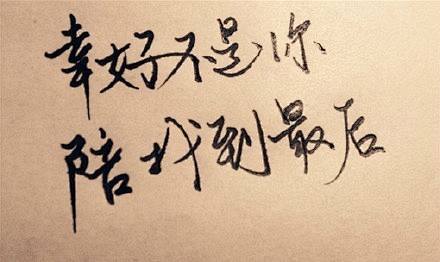 幸好不是你
陪我到最后